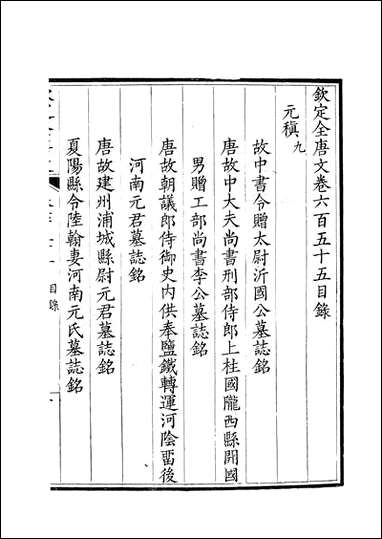 欽定全唐文卷六百五十五目錄
元稹九
故中書令贈太尉沂國公墓誌銘
唐故中大夫尚書刑部侍郎上柱國隴西縣開國
男贈工部尚書李公墓誌銘
唐故朝議郎侍御史內供奉鹽鐵轉運河陰留後
河南元君墓誌銘
唐故建州浦城縣尉元君墓誌銘
夏陽縣令陸翰妻河南元氏墓誌銘
目錄